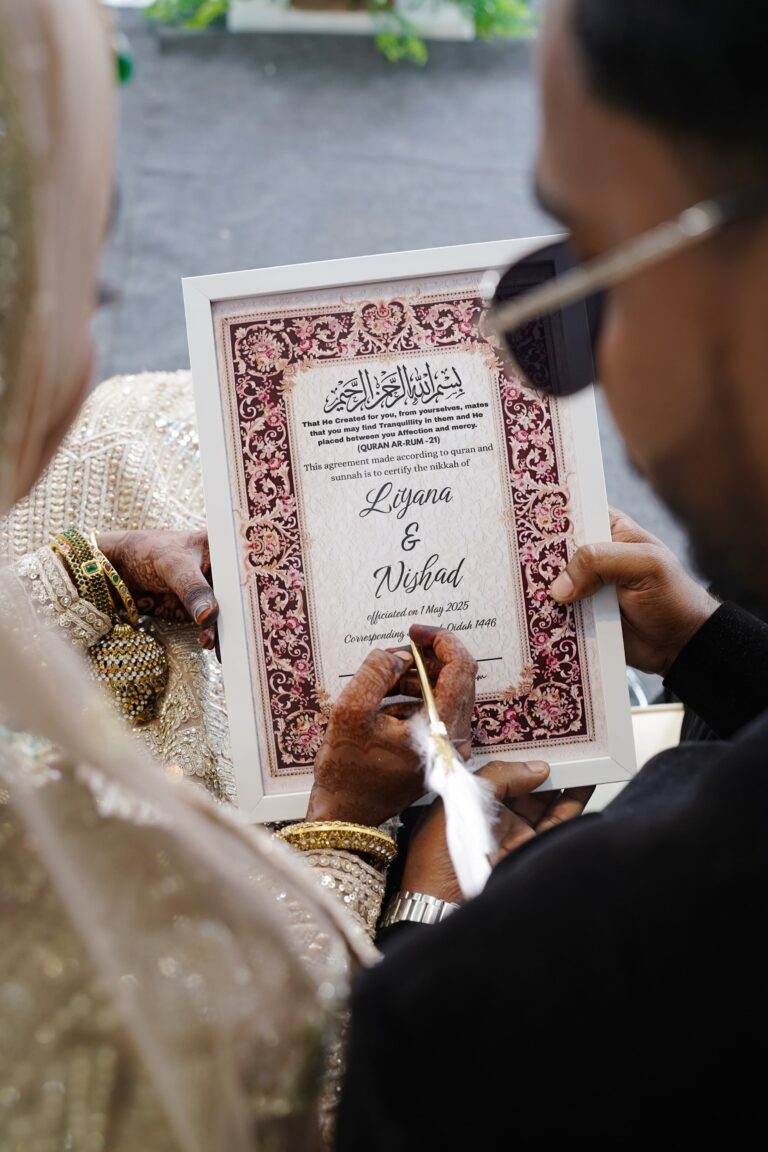 بسم الله الرحمن الرحيم
That He Created for you, from yourselves, mates
that you may find Tranquillity in them and He
placed between you Affection and mercy.
(QURAN AR-RUM - 21)
This agreement made according to quran and
sunnah is to certify the nikkah of
Liyana
&
Nishad
officiated on 1 May 2025
Corresponding Qidah 1446